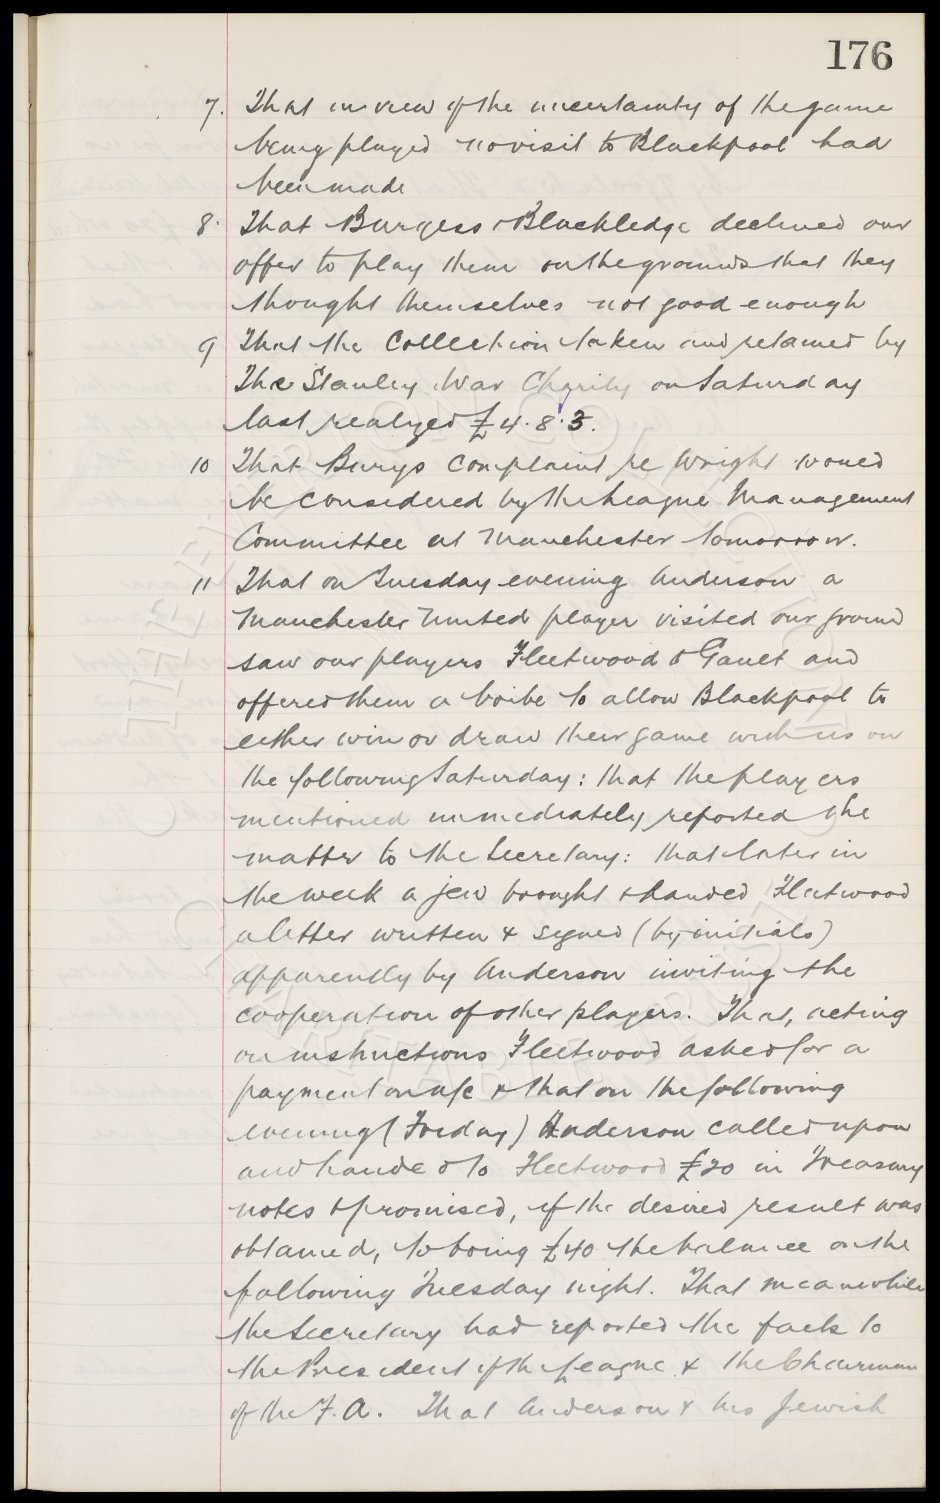 176
7. That in view of the uncertainty of the game
being played no visit to Blackpool had
been made
8. That Burgess & Blackledge declined our
offer to play them on the grounds that they
thought themselves not good enough
9 That the Collection taken and retained by
The Stanley War Charity on Saturday
last realized £4.8.3.
10 That Burys complaint re Wright would
be considered by the League Management
Committee at Manchester tomorrow.
11 That on Tuesday evening Anderson a
Manchester United player visited our ground
saw our players Fleetwood & Gault and
offered them a bribe to allow Blackpool to
either win or draw their game with us on
the following Saturday: that the players
mentioned immediately reported the
matter to the Secretary: that later in
the week a jew brought & handed Fleetwood
a letter written & signed (by initials)
apparently by Anderson inviting the
cooperation of other players. That, acting
on instructions Fleetwood asked for a
payment on a/c & that on the following
evening (Friday) Anderson called upon
and handed to Fleetwood £20 in Treasury
notes & promised, if the desired result was
obtained, to bring £40 the balance on the
following Tuesday night. That meanwhile
the Secretary had reported the facts to
the President of the League & the Chairman
of the F.A. That Anderson & his Jewish